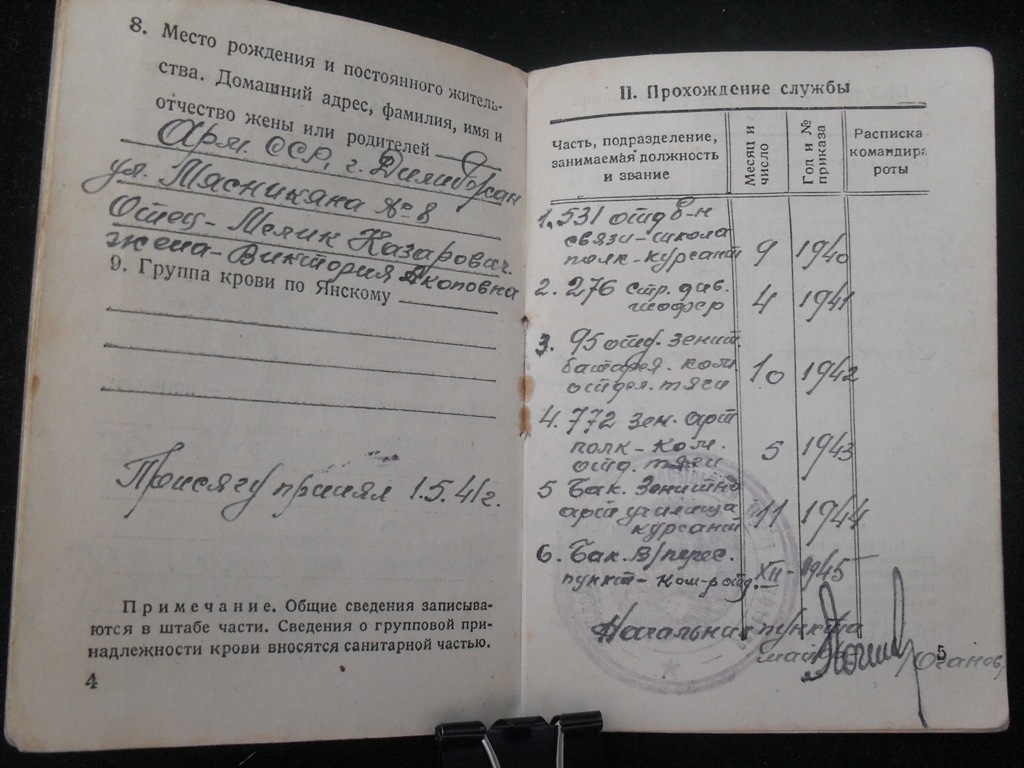 8. Место рождения и постоянного житель-
ства. Домашний адрес, фамилия, имя и
отчество жены или родителей
Арм. ССР, г. Дилиборсан
ул. Мясникяна № 8
Отец - Мелик Казарович.
жена - Виктория Акоповна
9. Группа крови по Янскому
Присягу принял 1.5.41г.
Примечание. Общие сведения записыва-
ются в штабе части. Сведения о групповой при-
надлежности крови вносятся санитарной частью.
4
II. Прохождение службы
Часть, подразделение, занимаемая должность и звание
Месяц и число
Год и № приказа
Расписка командира роты
1. 531 отд б-н
связи - школа
полк - курсант 9 1940
2. 276 стр. див.
шофер 4 1941
3. 95 отд. зенит.
батарея. ком
отдел. тяги 10 1942
4. 772 зен. арт
полк - ком.
отд. тяги 5 1943
5 Бак. Зенитно
арт училища
курсант 11 1944
6. Бак. В/перес.
пункт - ком-р отд. XII - 1945
Начальник пункта
майор
/Оганов/
5